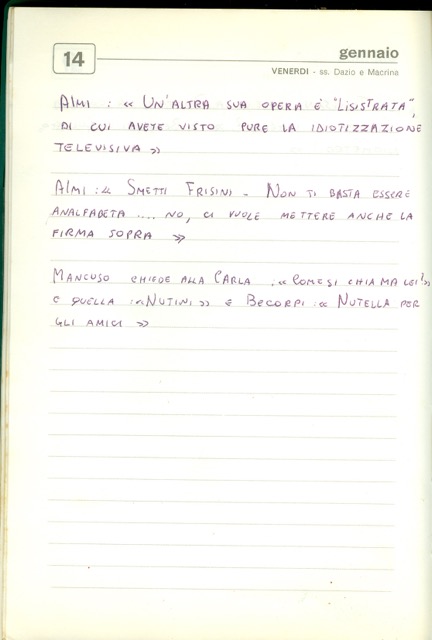 14
gennaio
VENERDI - ss. Dazio e Macrina
ALMI : « UN'ALTRA SUA OPERA È "LISISTRATA",
DI CUI AVETE VISTO PURE LA IDIOTIZZAZIONE
TELEVISIVA »
ALMI : « SMETTI FRISINI - NON TI BASTA ESSERE
ANALFABETA .... NO, CI VUOLE METTERE ANCHE LA
FIRMA SOPRA »
MANCUSO CHIEDE ALLA CARLA : « COME SI CHIAMA LEI? »
E QUELLA : « NUTINI » E BECORPI : « NUTELLA PER
GLI AMICI »